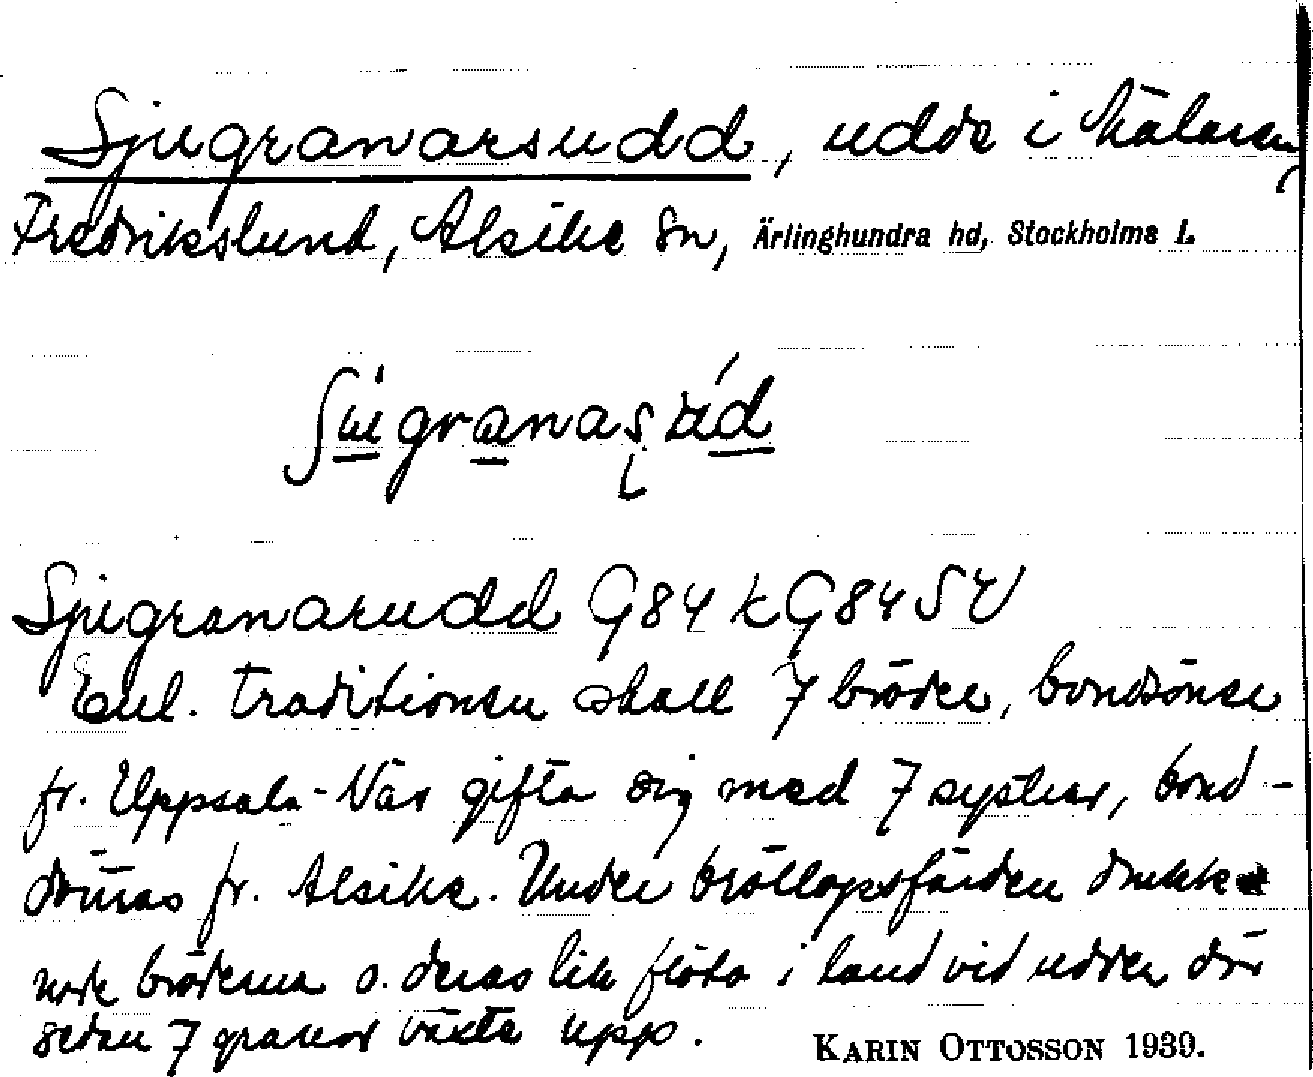 Sjugranarsudd, udde i Mälaren,
Fredrikslund, Alsike sn, Ärlinghundra hd, Stockholms L
Sjugranarudd G84 k G84SV
Enl. traditionen skall 7 bröder, bondsöner
fr. Uppsala-Näs gifta sig med 7 systrar, bond-
döttras fr. Alsike. Under bröllopsfärden drunk-
nade bröderna o. deras lik flöto i land vid udden där
sedan 7 granar växte upp.
KARIN OTTOSSON 1939.